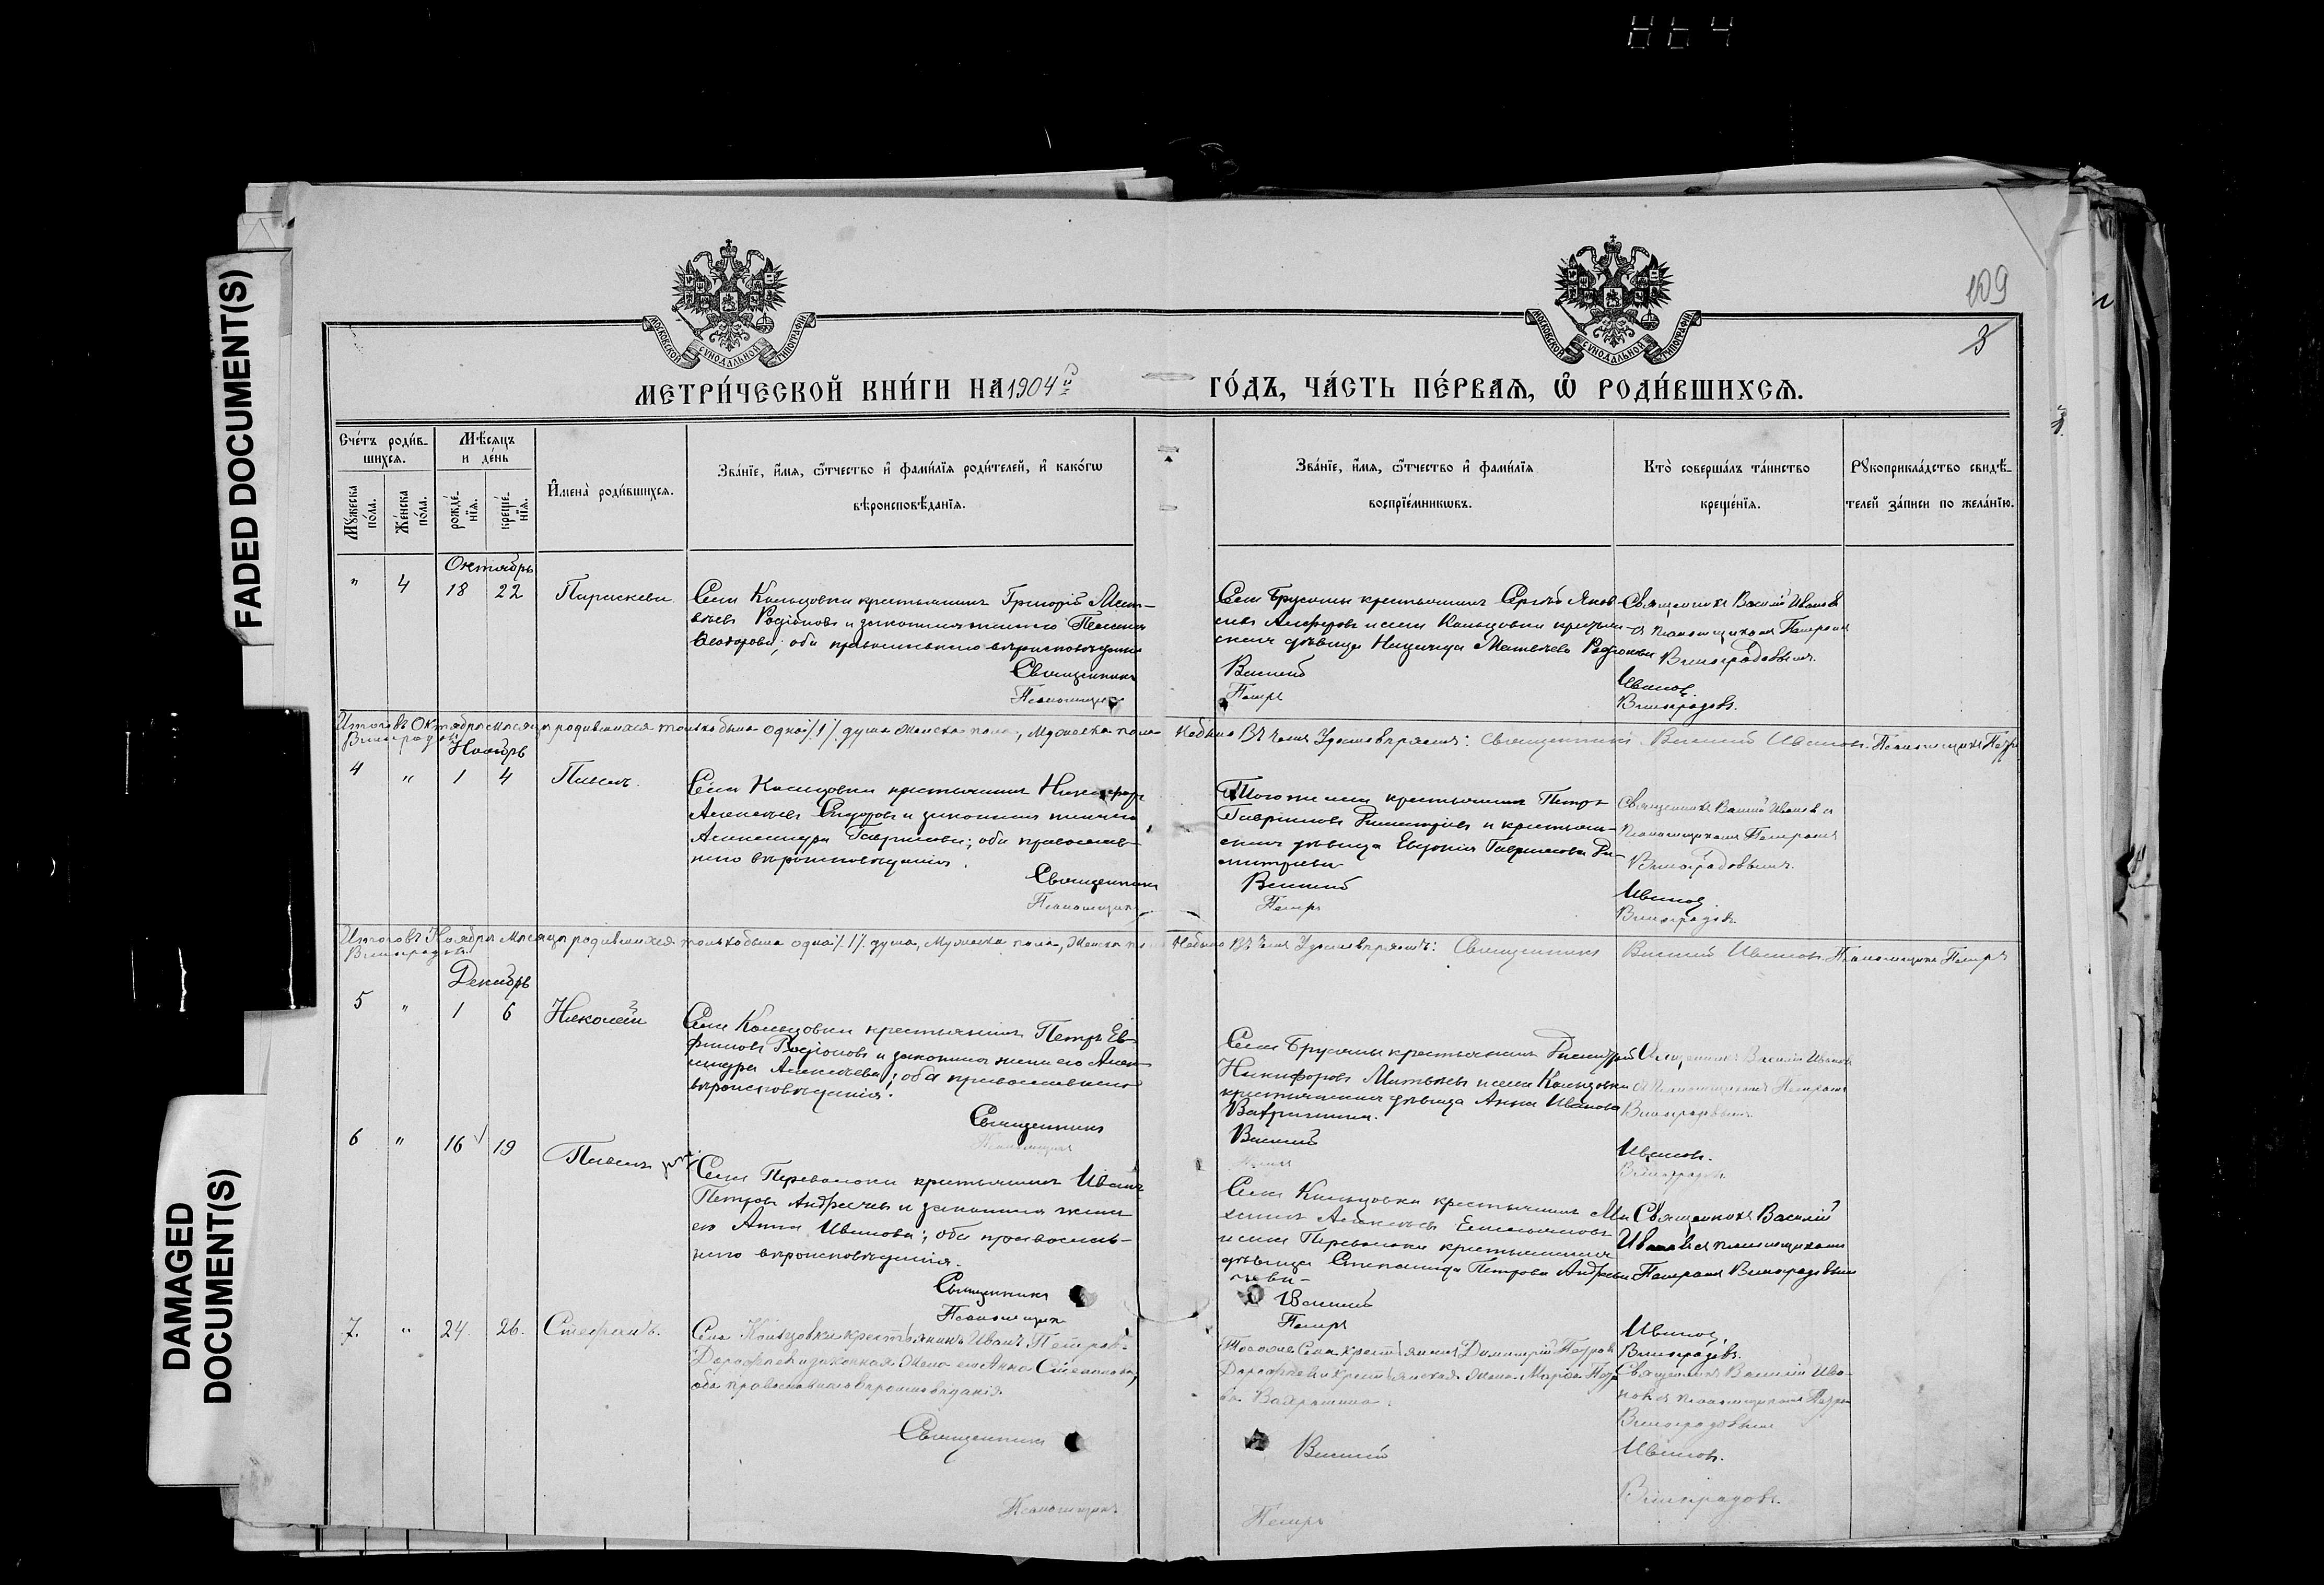 864
FADED DOCUMENT(S)
DAMAGED
DOCUMENT(S)
109
3
МОСКОВСКОЙ СѴНОДАЛЬНОЙ ТИПОГРАФІИ
МОСКОВСКОЙ СѴНОДАЛЬНОЙ ТИПОГРАФІИ
МЕТРИ́ЧЕСКОЙ КНИ́ГИ НА 1904й ГО́ДЪ, ЧА́СТЬ ПЕ́РВАѦ, Ѡ҆ РОДИ́ВШИХСѦ.
Сче́тъ роди́в-
шихсѧ.
Мꙋжеска
по́ла.
Же́нска
по́ла.
Мѣ́сѧцъ
и де́нь
рожде́-
нїѧ.
креще́-
нїѧ.
И҆мена̀ роди́вшихсѧ.
Зва́нїе, и҆́мѧ, ѻ҆́тчество и҆ фами́лїѧ роди́телей, и҆ како́гѡ
вѣроисповѣ́данїѧ.
Зва́нїе, и҆́мѧ, ѻ҆́тчество и҆ фами́лїѧ
воспрїе́мникѡвъ.
Кто̀ соверша́лъ та́инство
креще́нїѧ.
Рꙋкоприкла́дство свидѣ́-
телей за́писи по жела́нїю.
Октябрь
" 4 18 22 Параскева
Села Кольцовки крестьянинъ Григорій Мат-
вѣевъ Родіоновъ и законная жена его Пелагия
Ѳеодорова; оба православнаго вѣроисповѣданія
Священникъ
Псаломщикъ
Села Брусяны крестьянинъ Сергѣй Яков-
левъ Алферовъ и села Кальцовки крестьян-
ская дѣвица Матвѣева Родіонова
Василій
Петръ
Священникъ Василій Ивановъ
съ псаломщикомъ Петромъ
Виноградовымъ.
Ивановъ.
Виноградовъ.
Итого въ Октябрѣ мѣсяцѣ родившихся только была одна /1/ душа женска пола, мужеска пола не было. Въ чемъ удостовѣряемъ: Священникъ Василій Ивановъ. Псаломщикъ Петръ
Виноградовъ
Ноябрь
4 " 1 4 Павелъ.
Села Кальцовки крестьянинъ Никифоръ
Алексѣевъ Сидоровъ и законная жена его
Александра Гаврилова; оба православ-
наго вѣроисповѣданія.
Священникъ
Псаломщикъ
Того же села крестьянинъ Петръ
Гавриловъ Димитріевъ и крестьян-
ская дѣвица Евдокія Гаврилова Ди-
митріева
Василій
Петръ
Священникъ Василій Ивановъ съ
псаломщикомъ Петромъ
Виноградовымъ.
Ивановъ.
Виноградовъ.
Итого въ Ноябрѣ мѣсяцѣ родившихся только была одна /1/ душа, мужеска пола, женска пола не было. Въ чемъ удостовѣряемъ: Священникъ Василій Ивановъ. Псаломщикъ Петръ
Виноградовъ.
Декабрь
5 " 1 6 Николай
Села Кольцовки крестьянинъ Петръ Ев-
фимовъ Родіоновъ и законная жена его Алек-
сандра Алексѣева; оба православнаго
вѣроисповѣданія.
Священникъ
Псаломщикъ
Села Брусяны крестьянинъ Димитрій
Никифоровъ Матвѣевъ и села Кальцовки
крестьянская дѣвица Анна Иванова
Вахрамеева.
Василій
Петръ
Священникъ Василій Ивановъ
съ Псаломщикомъ Петромъ
Виноградовымъ.
Ивановъ.
Виноградовъ.
6 " 16 19 Павелъ
Села Переволоки крестьянинъ Иванъ
Петровъ Андреевъ и законная жена
его Анна Иванова; оба православ-
наго вѣроисповѣданія.
Священникъ
Псаломщикъ
Села Кальцовки крестьянинъ
Алексѣевъ Емельяновъ
и села Переволоки крестьянская
дѣвица Степанида Петрова Андре-
ева
Василій
Петръ
Священникъ Василій
Ивановъ съ псаломщикомъ
Петромъ Виноградовымъ
Ивановъ.
Виноградовъ.
7. " 24. 26. Стефанъ.
Села Кольцовки крестьянинъ Иванъ Петровъ
Дорофѣевъ и законная жена его Анна Степанова,
оба православнаго вѣроисповѣданія.
Священникъ
Псаломщикъ
Того же села крестьянинъ Димитрій Петровъ
Дорофѣевъ и крестьянская жена Марія Петро-
ва Вахрамеева.
Василій
Петръ
Священникъ Василій Ива-
новъ съ псаломщикомъ Петромъ
Виноградовымъ
Ивановъ.
Виноградовъ.